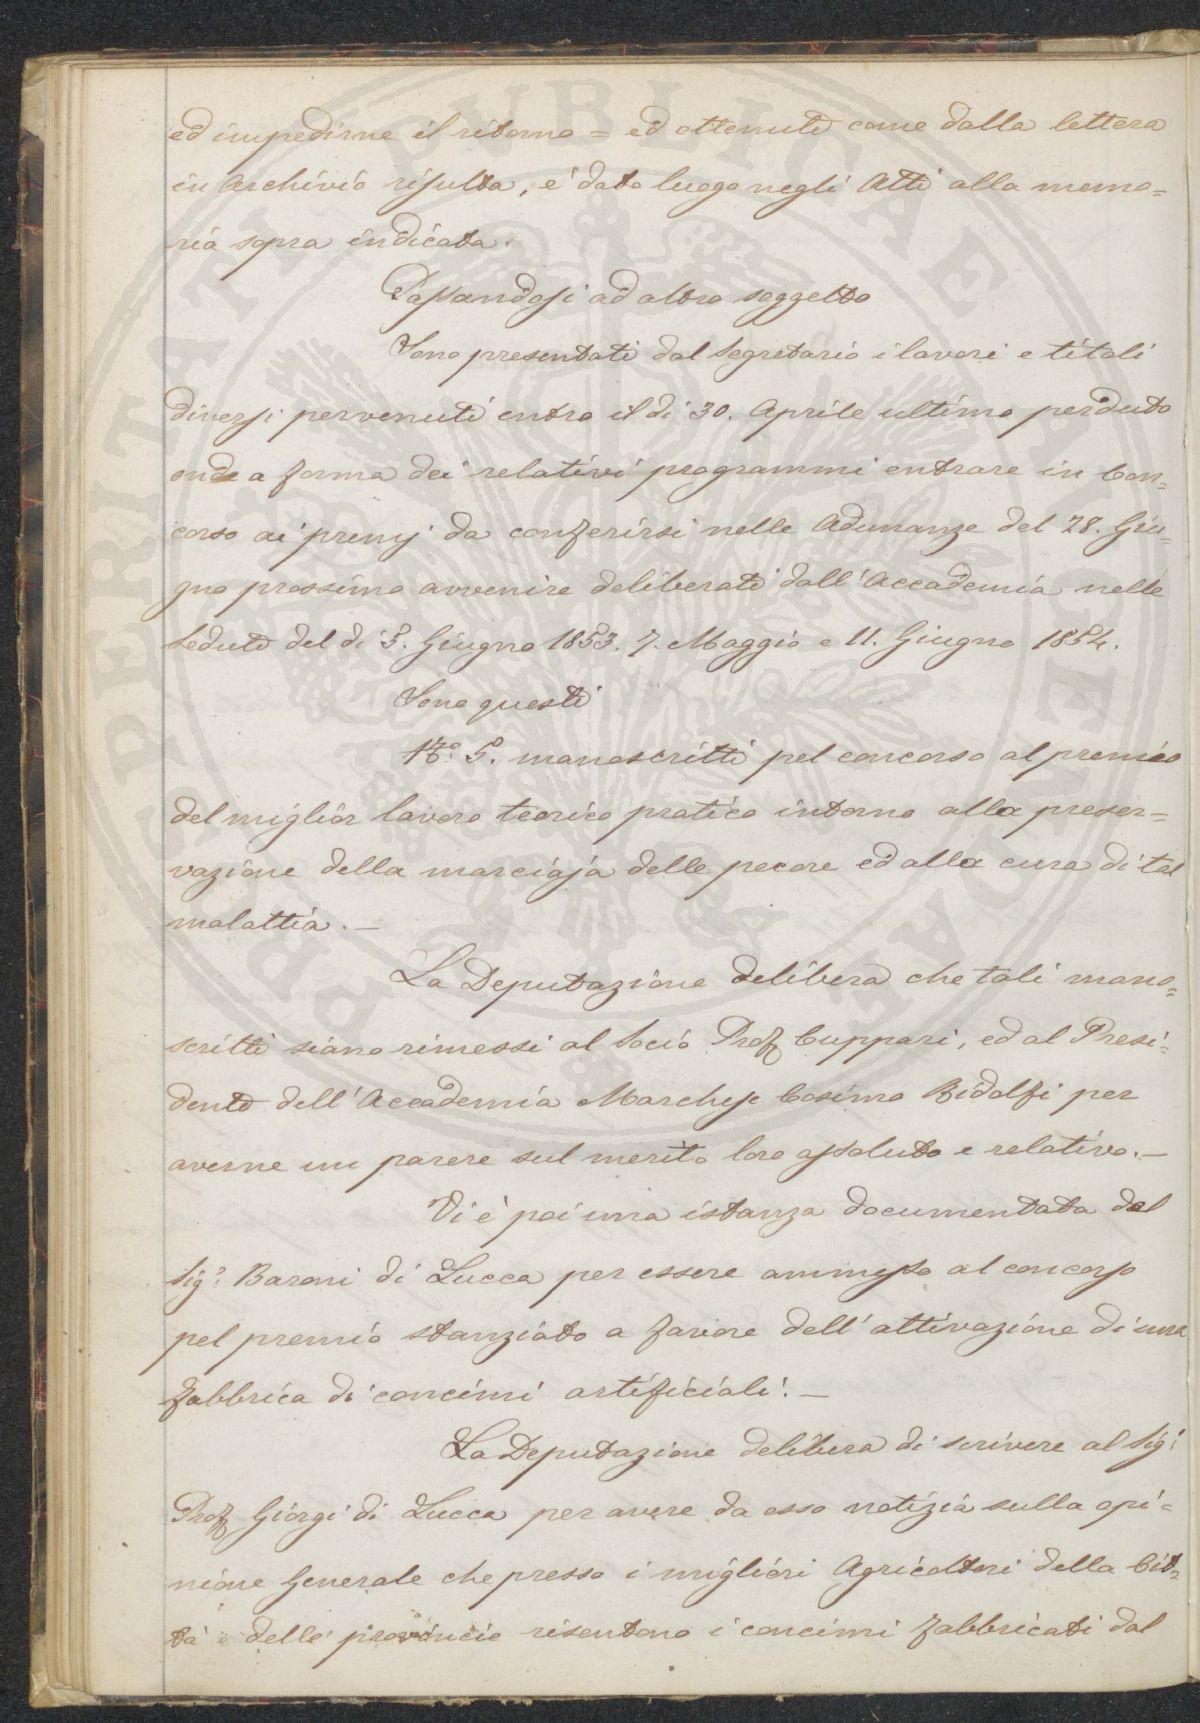 ed impedirne il ritorno = ed ottenute come dalla lettera
in Archivio risulta, è dato luogo negli Atti alla memo=
ria sopra indicata.
Passandosi ad altro soggetto
Sono presentati dal Segretario i lavori e titoli
diversi pervenuti entro il di 30. Aprile ultimo perduto
onde a forma dei relativi programmi entrare in Con=
corso ai premj da conferirsi nelle Adunanze del 28. Giu=
gno prossimo avvenire deliberati dall'Accademia nelle
Sedute del di 5. Giugno 1853. 7. Maggio e 11. Giugno 1854.
Sono questi
N.º 5. manoscritti pel concorso al premio
del miglior lavoro teorico pratico intorno alla preser=
vazione della marciaja delle pecore ed alla cura di tal
malattia. —
La Deputazione delibera che tali mano=
scritti siano rimessi al Socio Prof Cuppari, ed al Presi=
dente dell'Accademia Marchese Cosimo Ridolfi per
averne un parere sul merito loro assoluto e relativo. —
Vi è poi una istanza documentata del
Sig.r Baroni di Lucca per essere ammesso al concorso
pel premio stanziato a favore dell'attivazione di una
fabbrica di concimi artificiali. —
La Deputazione delibera di scrivere al Sig.
Prof Giorgi di Lucca per avere da esso notizia sulla opi=
nione Generale che presso i migliori Agricoltori della Cit=
tà e delle provincie risentono i concimi fabbricati dal
PUBLICAE FELICITATI
PROSPERITATI